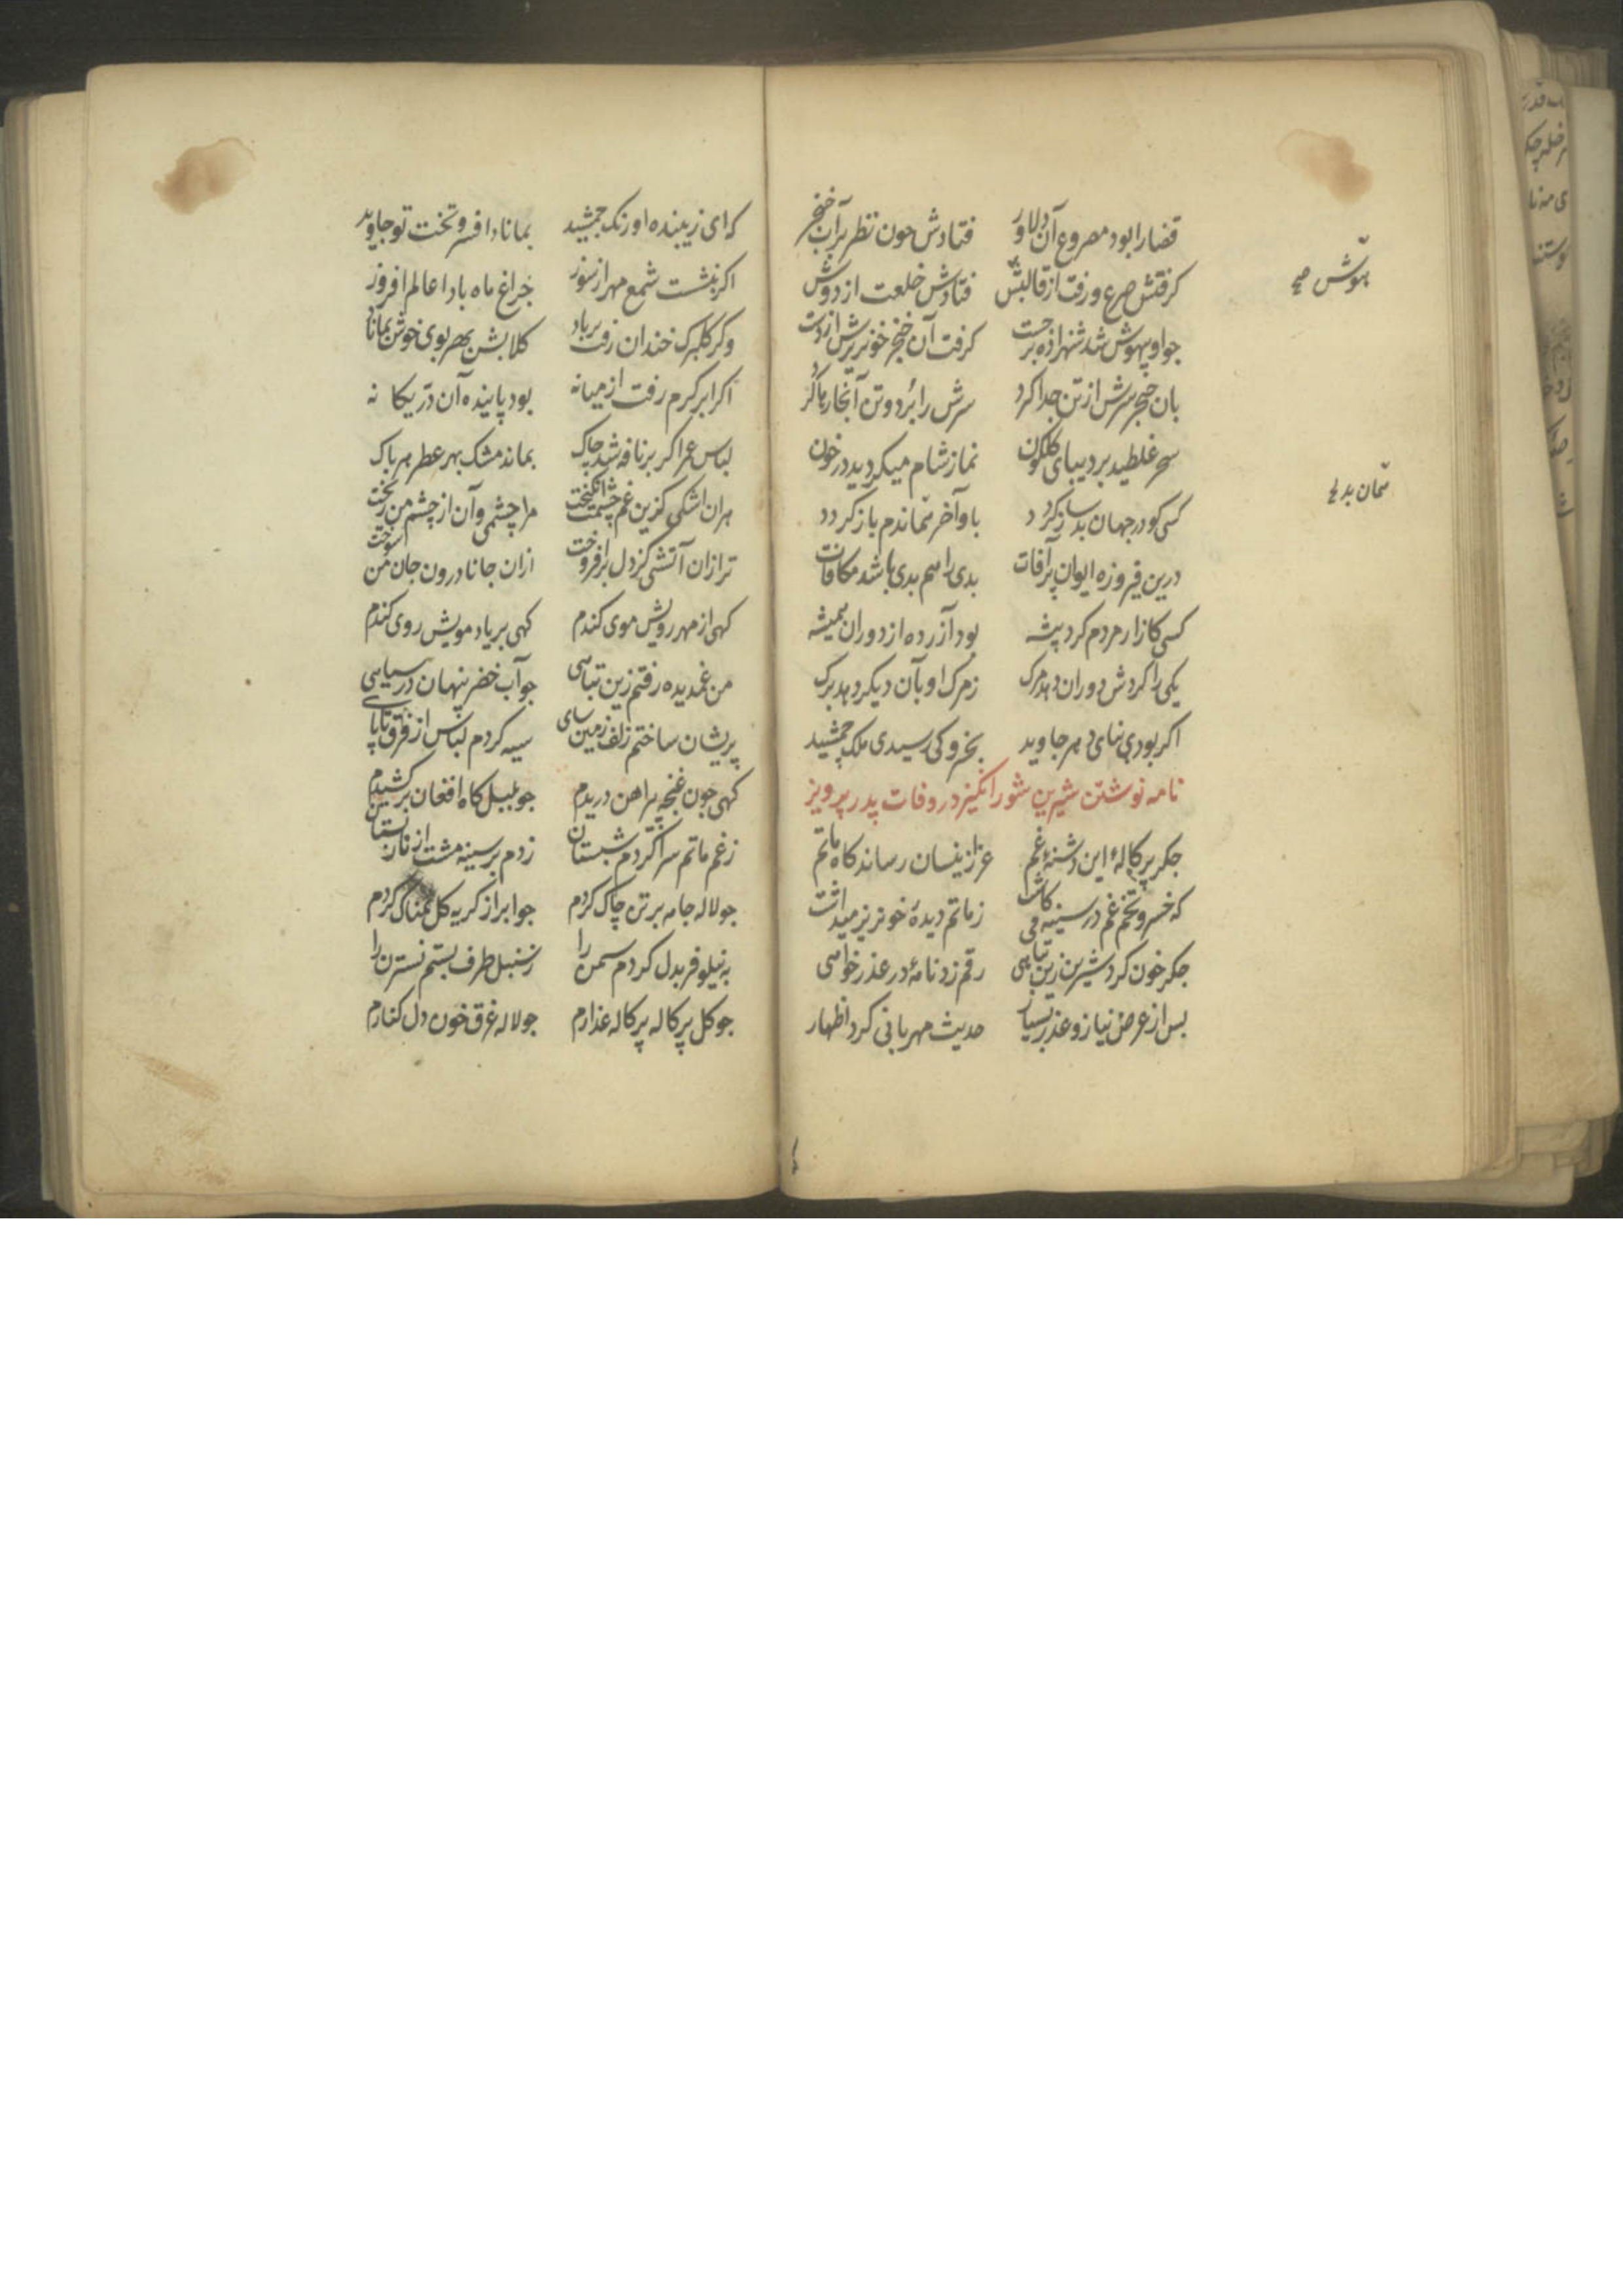 قضارا بود مصروع آن دلاور فتادش چون نظر بر آب خنجر
کرفتش صرع و رفت از قالبش فتادش خلعت از دوش
هوش صح
جو او بیهوش شد شهزاده برجست کرفت آن خنجر خونریزش از دست
بان خنجر سرش از تن جدا کرد سرش را برد و تن آنجا رها کرد
سحر غلطید بر دیبای کلکون نماز شام میکردید در خون
همان بد صح
کسی کو در جهان بد ساز کردد باو آخر همان دم باز کردد
درین فیروزه ایوان پرآفات بدی را هم بدی باشد مکافات
کسی کازار مردم کرد پیشه بود آزرده از دوران همیشه
یکی را کردش دوران دهد مرک ز مرک او بآن دیکر دهد برک
اکر بودی بنای دهر جاوید بخسرو کی رسیدی ملک جمشید
نامه نوشتن شیرین شورانکیز در وفات پدر پرویز
جکر پرکالهٔ این دشنهٔ غم عزا زینسان رساند کاه ماتم
که خسرو تخم غم در سینه می کاشت ز ماتم دیدهٔ خونریز میداشت
جکر خون کرد شیرین زین تباهی رقم زد نامهٔ در عذر خواهی
بس از عرض نیاز و عذر بسیار حدیث مهربانی کرد اظهار
که ای زیبنده اورنک جمشید بماناد افسر و تخت تو جاوید
اکر بنشست شمع مهر از سوز جراغ ماه بادا عالم افروز
وکر کلبرک خندان رفت بر باد کلابش بهر بوی خوش بماناد
اکر ابر کرم رفت از میانه بود پاینده آن در یکانه
لباس عمر اکر بر نافه شد چاک بماند مشک بهر عطر هر باک
هران اشکی کزین غم چشمت انکیخت مرا چشمی و آن از چشم من ریخت
ترا زان آتشی کز دل برافروخت ازان جانا درون جان من سوخت
کهی از مهر رویش موی کندم کهی بر یاد مویش روی کندم
من غمدیده رفتم زین تباهی جو آب خضر پنهان در سیاهی
پریشان ساختم زلف زمین سای سیه کردم لباس از فرق تا پای
کهی جون غنجه پیراهن دریدم جو بلبل کاه افغان برکشیدم
ز غم ماتم سرا کردم شبستان زدم بر سینه مشت از نار بستان
جو لاله جامه بر تن چاک کردم جو ابر از کریه کل نمناک کردم
به نیلوفر بدل کردم سمن را ز سنبل طرف بستم نسترن را
جو کل پرکاله پرکاله عذارم جو لاله غرق خون دل کنارم